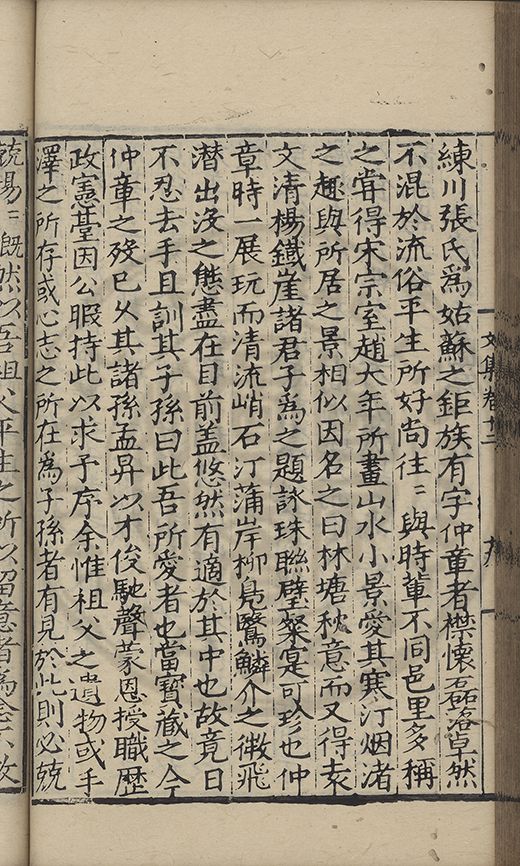 文集卷十二
九
練川張氏爲姑蘇之鉅族有字仲章者襟懷磊落卓然
不混於流俗平生所好尚往〻與時輩不同邑里多稱
之甞得宋宗室趙大年所畫山水小景愛其寒汀烟渚
之趣與所居之景相似因名之曰林塘秋意而又得袁
文清楊鐵崖諸君子爲之題詠珠聯璧粲寔可珍也仲
章時一展玩而清流峭石汀蒲岸柳鳧鷖鱗介之微飛
潜出没之態盡在目前盖悠然有適於其中也故竟日
不忍去手且訓其子孫曰此吾所愛者也當寳藏之今
仲章之殁已久其諸孫孟昇以才俊馳聲蒙恩授職歷
政憲䑓因公暇持此以求予序余惟祖父之遺物或手
澤之所存或心志之所在爲子孫者有見於此則必兢
兢惕〻既然以吾祖父平生之所以留意者爲念